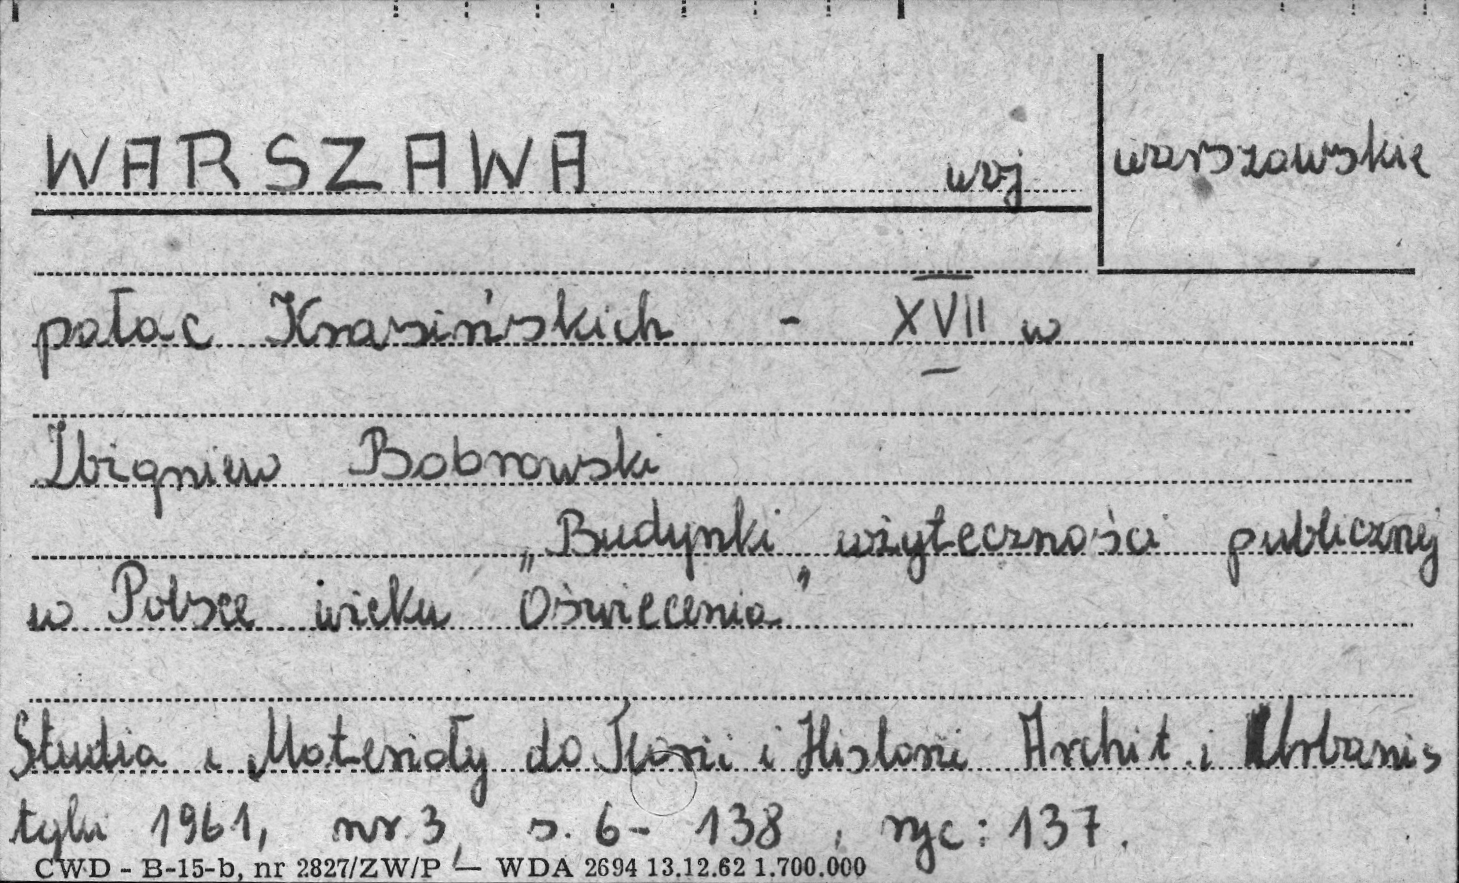 WARSZAWA woj warszawskie
pałac Krasińskich - XVII w
Zbigniew Bobrowski
„Budynki użyteczności publicznej
w Polsce wieku Oświecenia"
Studia i Materiały do Teorii i Historii Archit i Urbanis
tyki 1961, nr 3, s. 6 - 138, ryc: 137.
CWD - B-15-b, nr 2827/ZW/P — WDA 2694 13.12.62 1.700.000